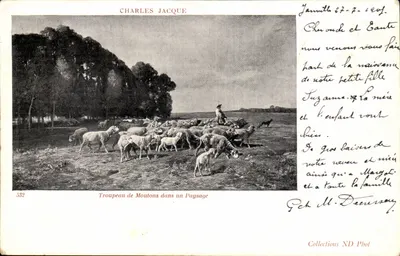 CHARLES JACQUE
Janville 27-7-1905
Cher oncle et Tante
nous venons vous faire
part de la naissance
de notre petite fille
Suzanne. La mère
et l'enfant vont
bien.
De gros baisers de
notre neveu et nièce
ainsi qu'a Margot
et a toute la famille
M.
527
Troupeau de Moutons dans un Paysage
Collections ND Phot